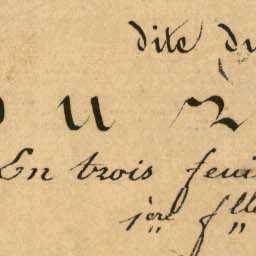 dite du
U R
En trois feui
1ère flle